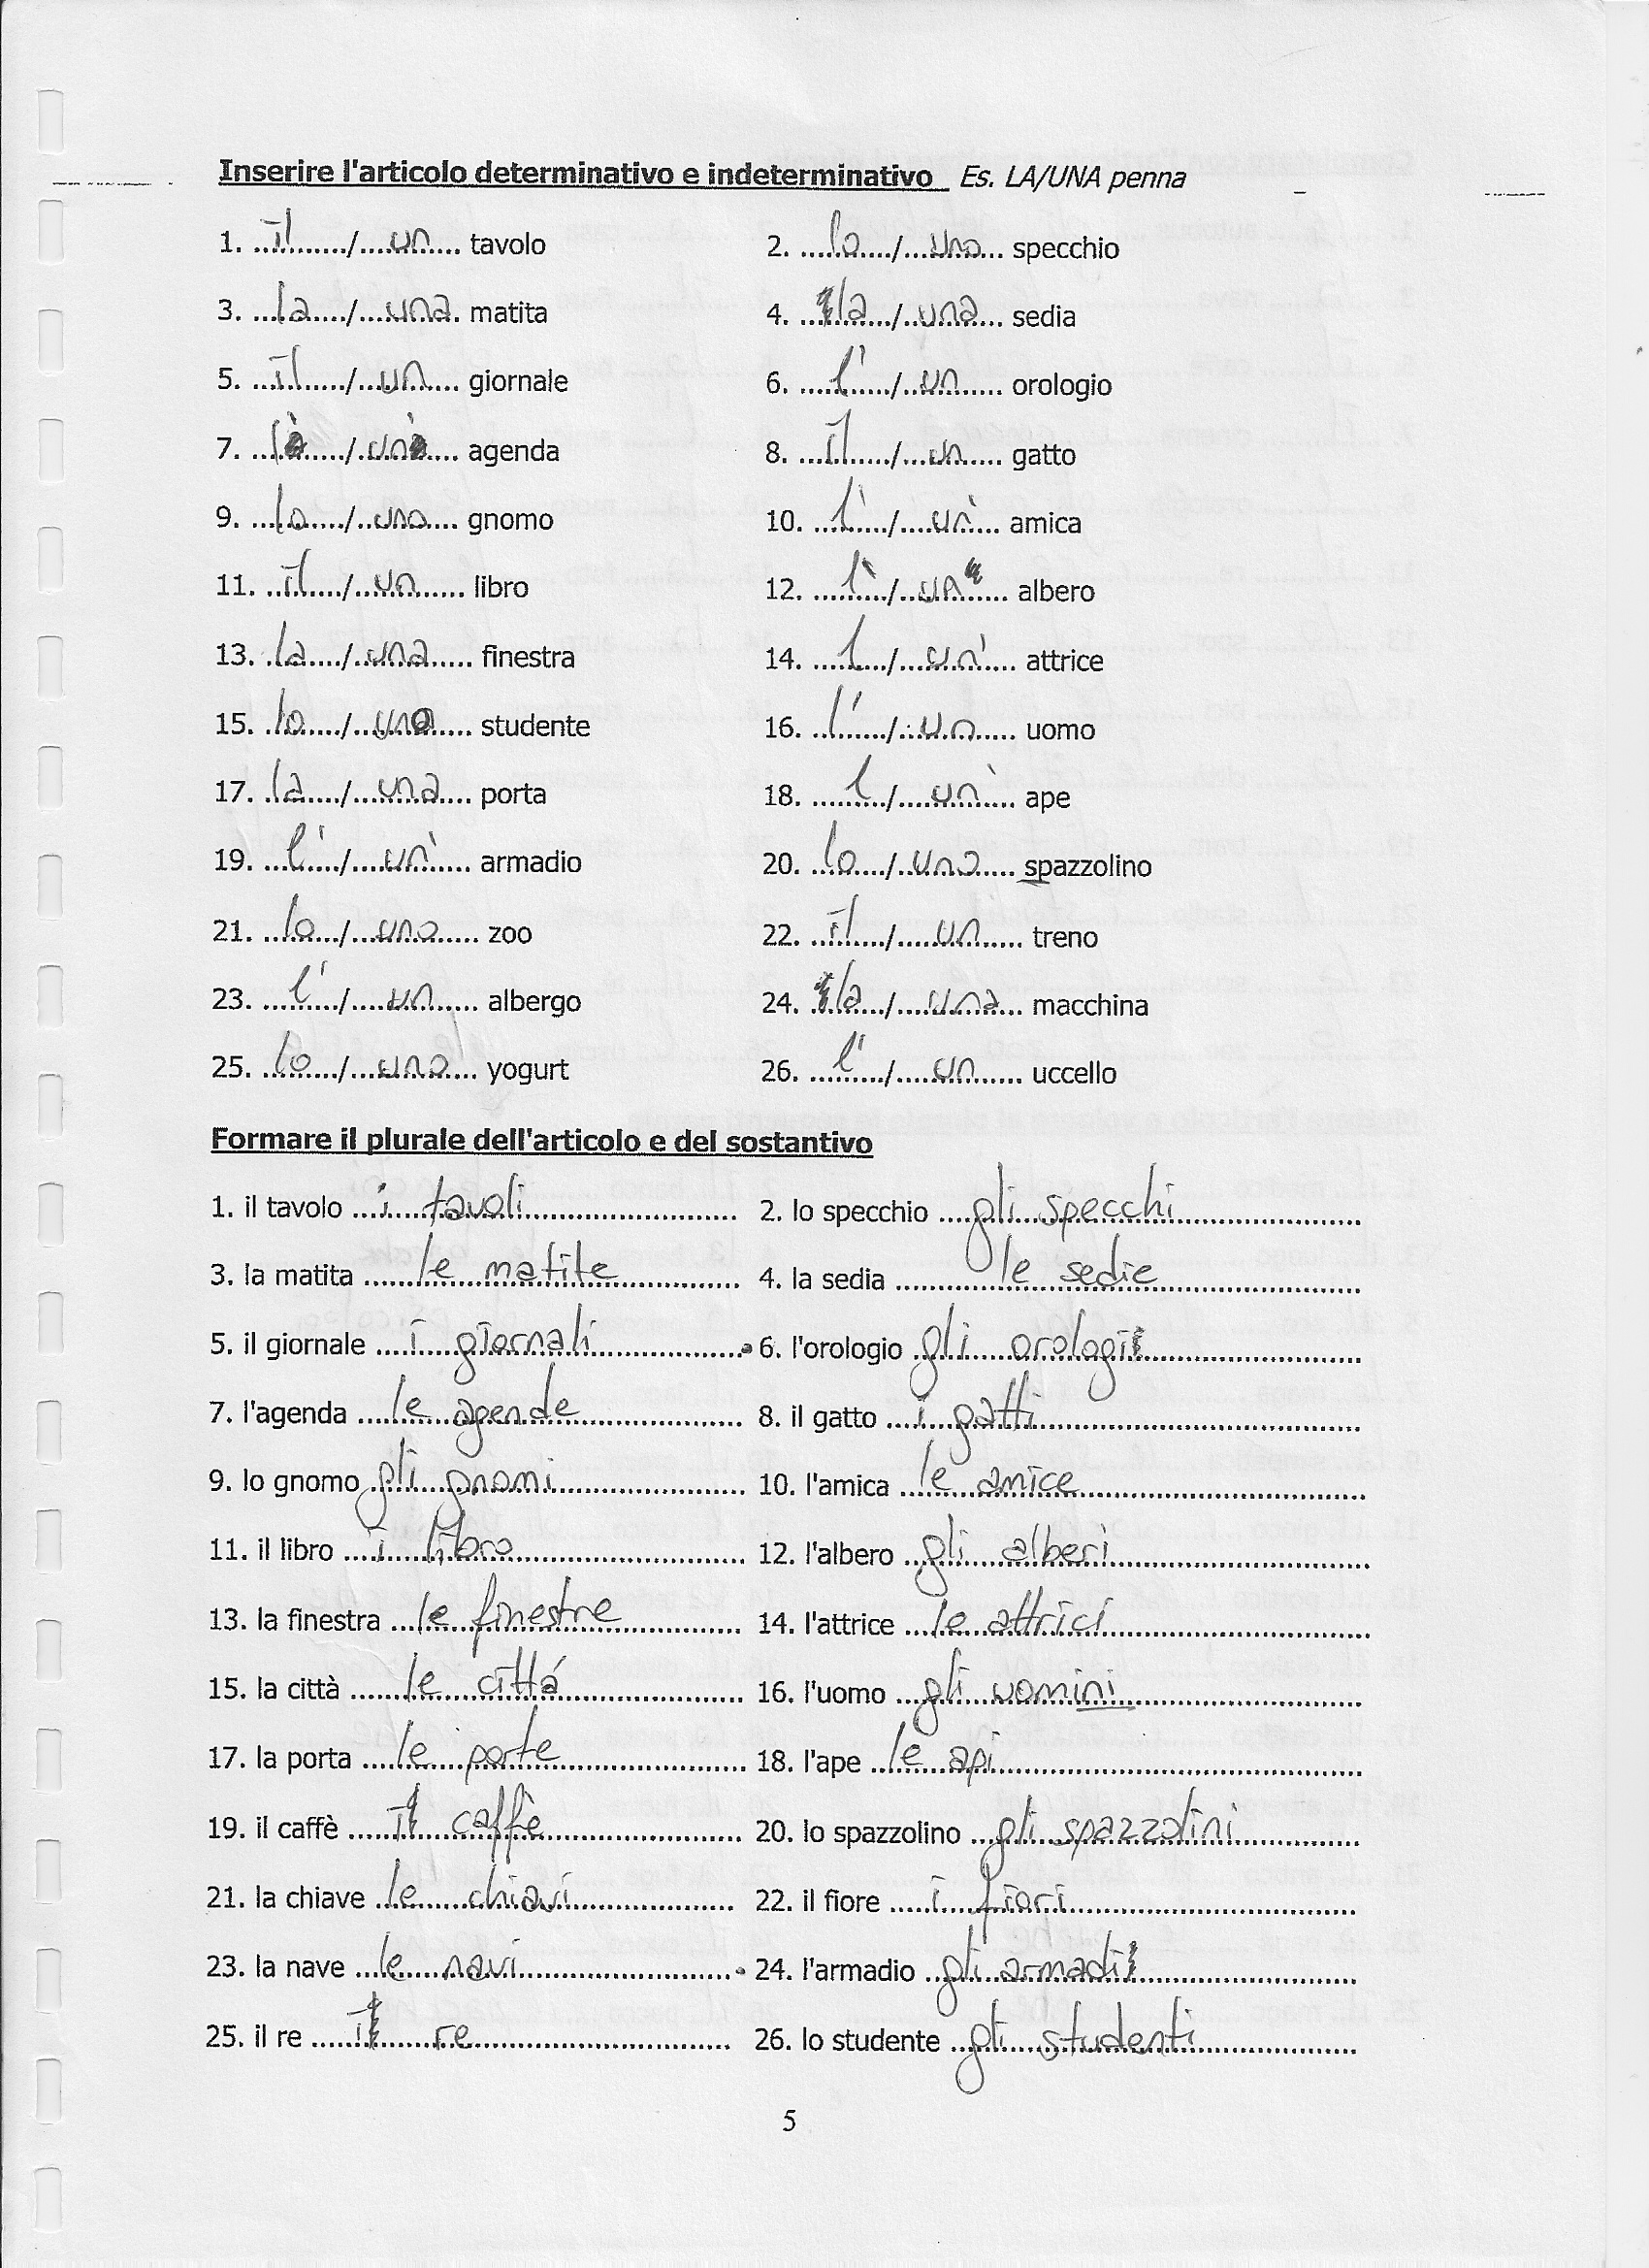 Inserire l'articolo determinativo e indeterminativo Es. LA/UNA penna
1. il / un tavolo 2. lo / uno specchio
3. la / una matita 4. la / una sedia
5. il / un giornale 6. l' / un orologio
7. l' / un' agenda 8. il / un gatto
9. lo / uno gnomo 10. l' / un' amica
11. il / un libro 12. l' / un albero
13. la / una finestra 14. l / un' attrice
15. lo / uno studente 16. l' / un uomo
17. la / una porta 18. l / un' ape
19. l' / un' armadio 20. lo / uno spazzolino
21. lo / uno zoo 22. il / un treno
23. l' / un albergo 24. la / una macchina
25. lo / uno yogurt 26. l' / un uccello
Formare il plurale dell'articolo e del sostantivo
1. il tavolo i tavoli 2. lo specchio gli specchi
3. la matita le matite 4. la sedia le sedie
5. il giornale i giornali 6. l'orologio gli orologi
7. l'agenda le agende 8. il gatto i gatti
9. lo gnomo gli gnomi 10. l'amica le amice
11. il libro i libro 12. l'albero gli alberi
13. la finestra le finestre 14. l'attrice le attrici
15. la città le cittá 16. l'uomo gli uomini
17. la porta le porte 18. l'ape le api
19. il caffè i caffè 20. lo spazzolino gli spazzolini
21. la chiave le chiavi 22. il fiore i fiori
23. la nave le navi 24. l'armadio gli armadi
25. il re i re 26. lo studente gli studenti
5